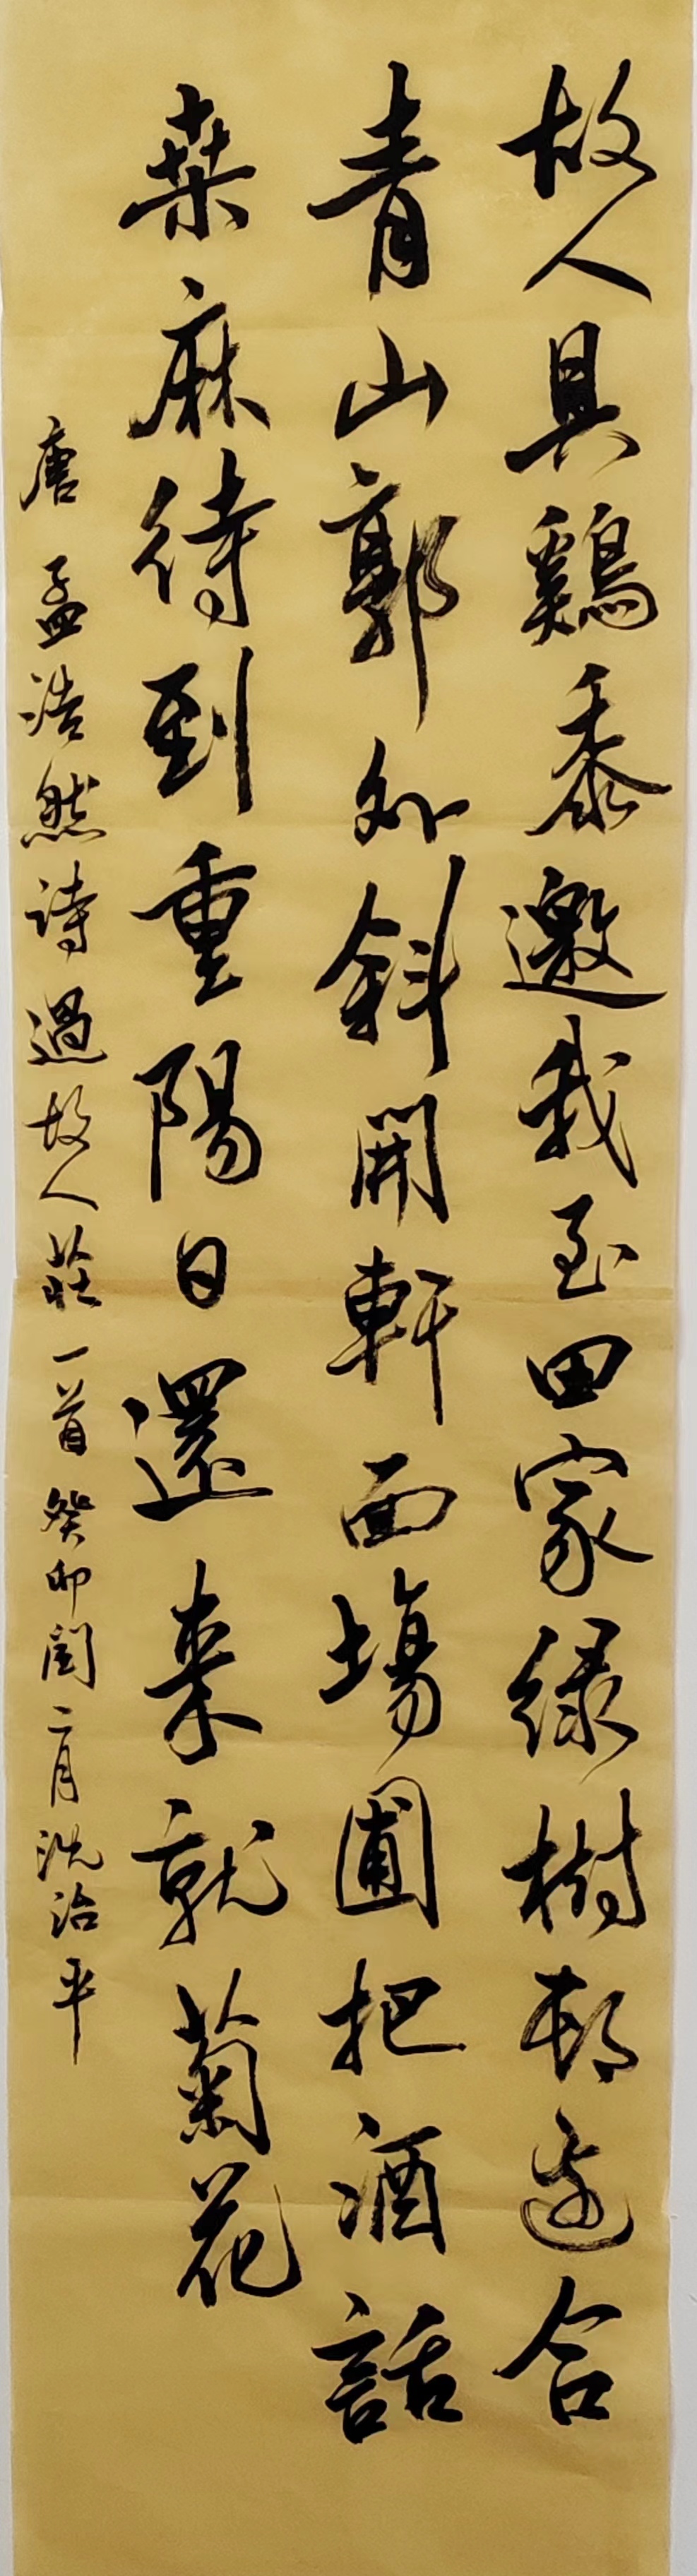 故人具鷄黍邀我至田家綠樹邨邊合
青山郭外斜開軒面場圃把酒話
桑麻待到重陽日還來就菊花
唐孟浩然詩過故人莊一首癸卯閏二月沈治平